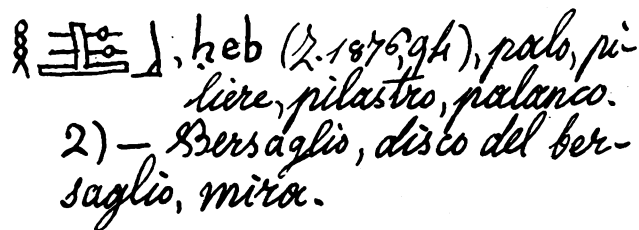 , ḥeb (Z. 1876, 94), palo, pi-
liere, pilastro, palanco.
2) — Bersaglio, disco del ber-
saglio, mira.